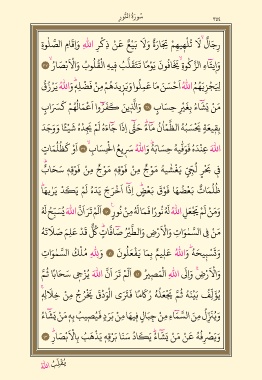 سُورَةُ النُّورِ ٣٥٤
رِجَالٌ لَا تُلْهِيهِمْ تِجَارَةٌ وَلَا بَيْعٌ عَنْ ذِكْرِ اللّٰهِ وَاِقَامِ الصَّلٰوةِ
وَا۪يتَٓاءِ الزَّكٰوةِ يَخَافُونَ يَوْمًا تَتَقَلَّبُ ف۪يهِ الْقُلُوبُ وَالْاَبْصَارُ ٣٧
لِيَجْزِيَهُمُ اللّٰهُ اَحْسَنَ مَا عَمِلُوا وَيَز۪يدَهُمْ مِنْ فَضْلِه۪ وَاللّٰهُ يَرْزُقُ
مَنْ يَشَٓاءُ بِغَيْرِ حِسَابٍ ٣٨ وَالَّذ۪ينَ كَفَرُٓوا اَعْمَالُهُمْ كَسَرَابٍ
بِق۪يعَةٍ يَحْسَبُهُ الظَّمْاٰنُ مَٓاءً حَتّٰٓى اِذَا جَٓاءَهُ لَمْ يَجِدْهُ شَيْـًٔا وَوَجَدَ
اللّٰهَ عِنْدَهُ فَوَفّٰيهُ حِسَابَهُ وَاللّٰهُ سَر۪يعُ الْحِسَابِ ٣٩ اَوْ كَظُلُمَاتٍ
ف۪ي بَحْرٍ لُجِّيٍّ يَغْشٰيهُ مَوْجٌ مِنْ فَوْقِه۪ مَوْجٌ مِنْ فَوْقِه۪ سَحَابٌ
ظُلُمَاتٌ بَعْضُهَا فَوْقَ بَعْضٍ اِذَٓا اَخْرَجَ يَدَهُ لَمْ يَكَدْ يَرٰيهَا
وَمَنْ لَمْ يَجْعَلِ اللّٰهُ لَهُ نُورًا فَمَا لَهُ مِنْ نُورٍ ٤٠ اَلَمْ تَرَ اَنَّ اللّٰهَ يُسَبِّحُ لَهُ
مَنْ فِي السَّمٰوَاتِ وَالْاَرْضِ وَالطَّيْرُ صَٓافَّاتٍ كُلٌّ قَدْ عَلِمَ صَلَاتَهُ
وَتَسْب۪يحَهُ وَاللّٰهُ عَل۪يمٌ بِمَا يَفْعَلُونَ ٤١ وَلِلّٰهِ مُلْكُ السَّمٰوَاتِ
وَالْاَرْضِ وَاِلَى اللّٰهِ الْمَص۪يرُ ٤٢ اَلَمْ تَرَ اَنَّ اللّٰهَ يُزْج۪ي سَحَابًا ثُمَّ
يُؤَلِّفُ بَيْنَهُ ثُمَّ يَجْعَلُهُ رُكَامًا فَتَرَى الْوَدْقَ يَخْرُجُ مِنْ خِلَالِه۪
وَيُنَزِّلُ مِنَ السَّمَٓاءِ مِنْ جِبَالٍ ف۪يهَا مِنْ بَرَدٍ فَيُص۪يبُ بِه۪ مَنْ يَشَٓاءُ
وَيَصْرِفُهُ عَنْ مَنْ يَشَٓاءُ يَكَادُ سَنَا بَرْقِه۪ يَذْهَبُ بِالْاَبْصَارِ ٤٣
يُقَلِّبُ اللّٰهُ